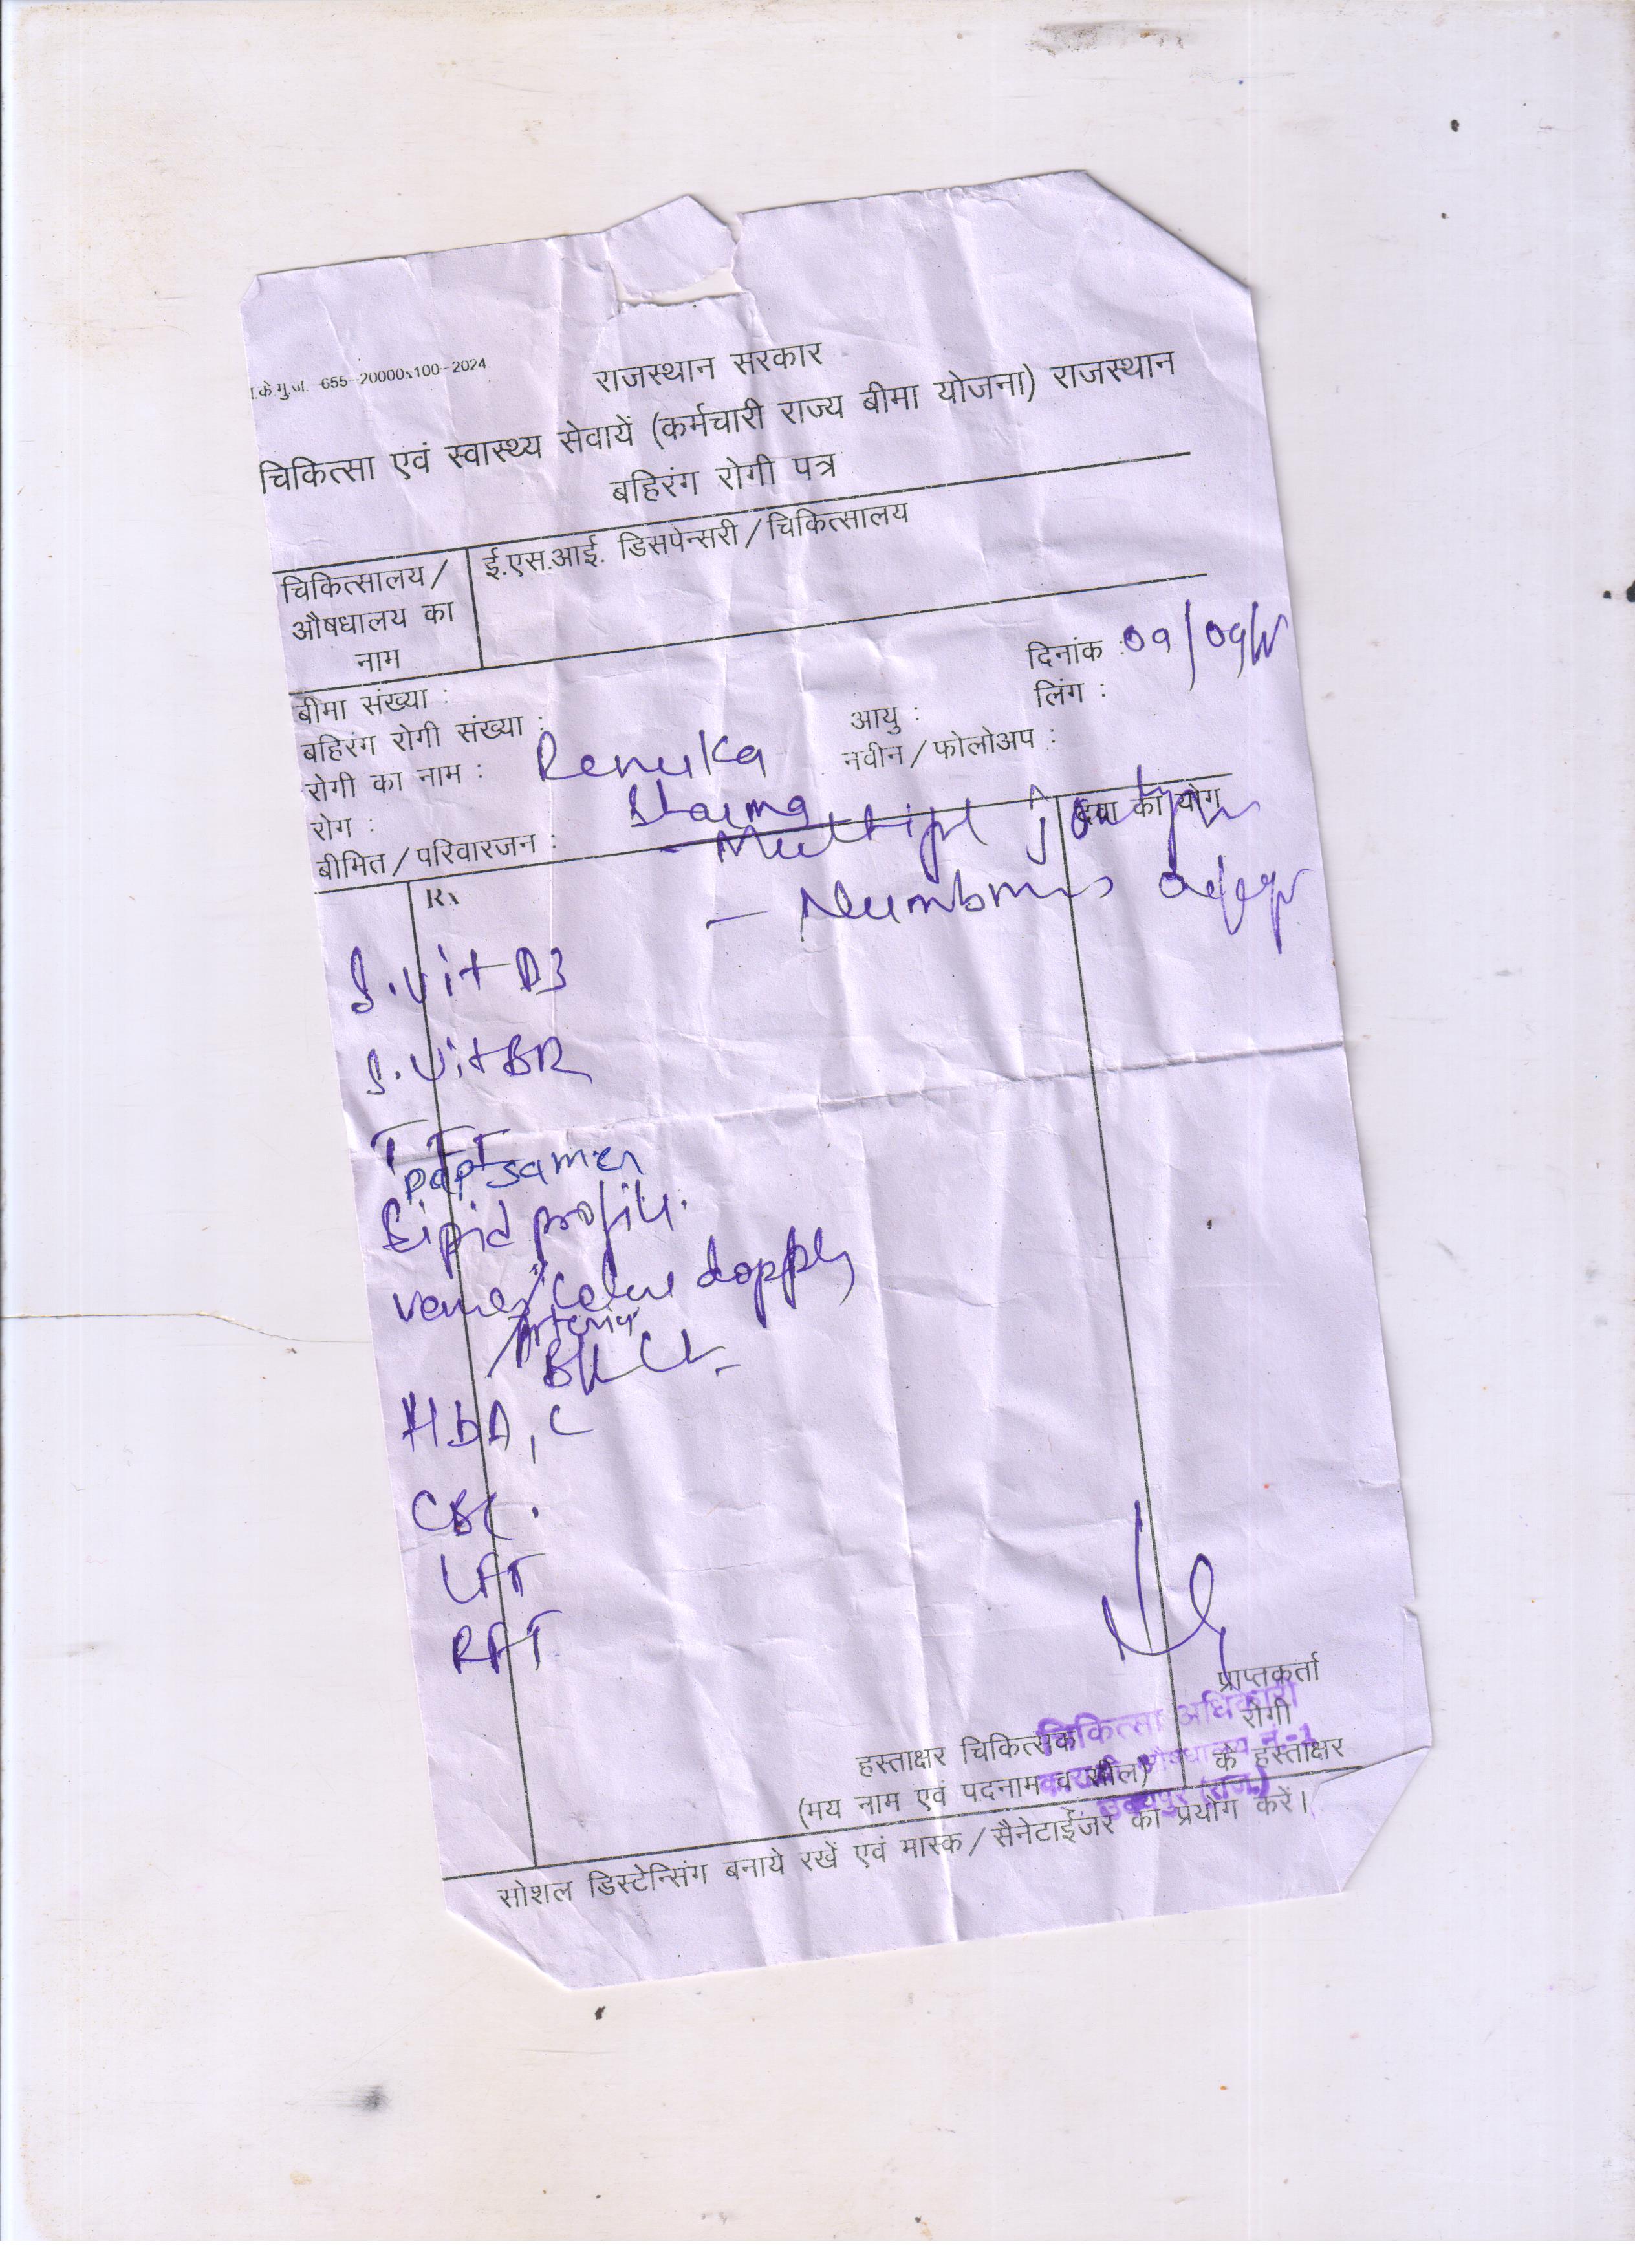 655-20000x100-2024
राजस्थान सरकार
चिकित्सा एवं स्वास्थ्य सेवायें (कर्मचारी राज्य बीमा योजना) राजस्थान
बहिरंग रोगी पत्र
चिकित्सालय/औषधालय का नाम
ई.एस.आई. डिसपेन्सरी/चिकित्सालय
दिनांक : 09/09/
बीमा संख्या :
लिंग :
बहिरंग रोगी संख्या :
आयु :
रोगी का नाम : Renuka Sharma
नवीन/फोलोअप :
रोग :
बीमित/परिवारजन :
दवा का योग
- Multiple joint
- Numbness
Rx
S. Vit D3
S. Vit B12
TFT
pap samer
Lipid profile.
venous/colour doppler
/Arterial
B/L LL
HbA1C
CBC.
LFT
RFT
प्राप्तकर्ता
रोगी
के हस्ताक्षर
हस्ताक्षर चिकित्सक
(मय नाम एवं पदनाम व सील)
चिकित्सा अधिकारी
औषधालय नं.-1
उदयपुर (राज.)
सोशल डिस्टेन्सिंग बनाये रखें एवं मास्क/सैनेटाईजर का प्रयोग करें।